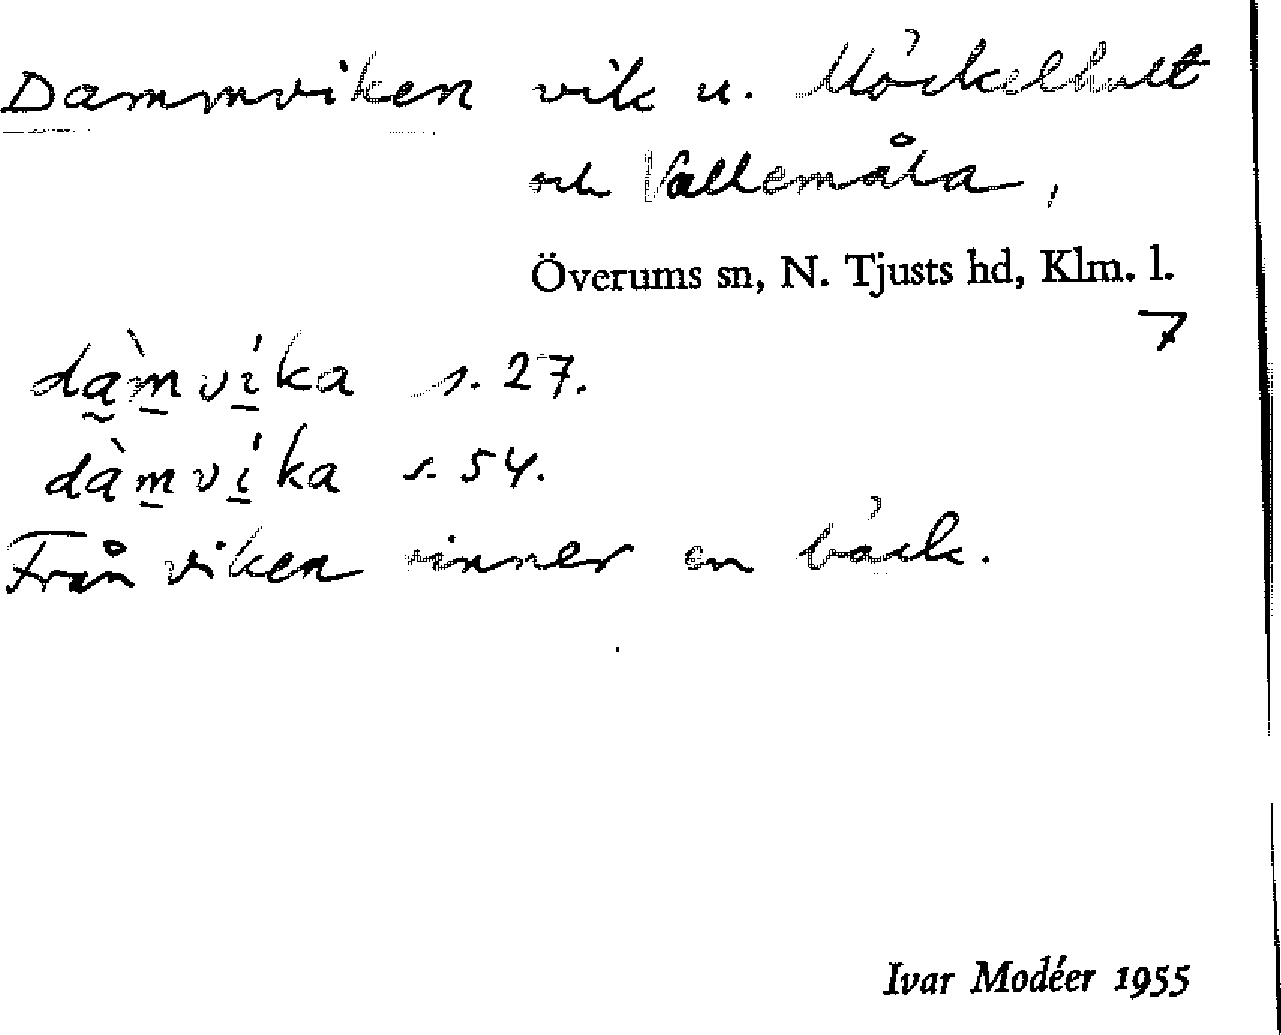 Dammviken vik u. Möckelhult
och Vållemåla,
Överums sn, N. Tjusts hd, Klm. l.
7
dà̰m̲ví̲ka s. 27.
dàm̲ví̲ka s. 54.
Från viken rinner en bäck.
Ivar Modéer 1955